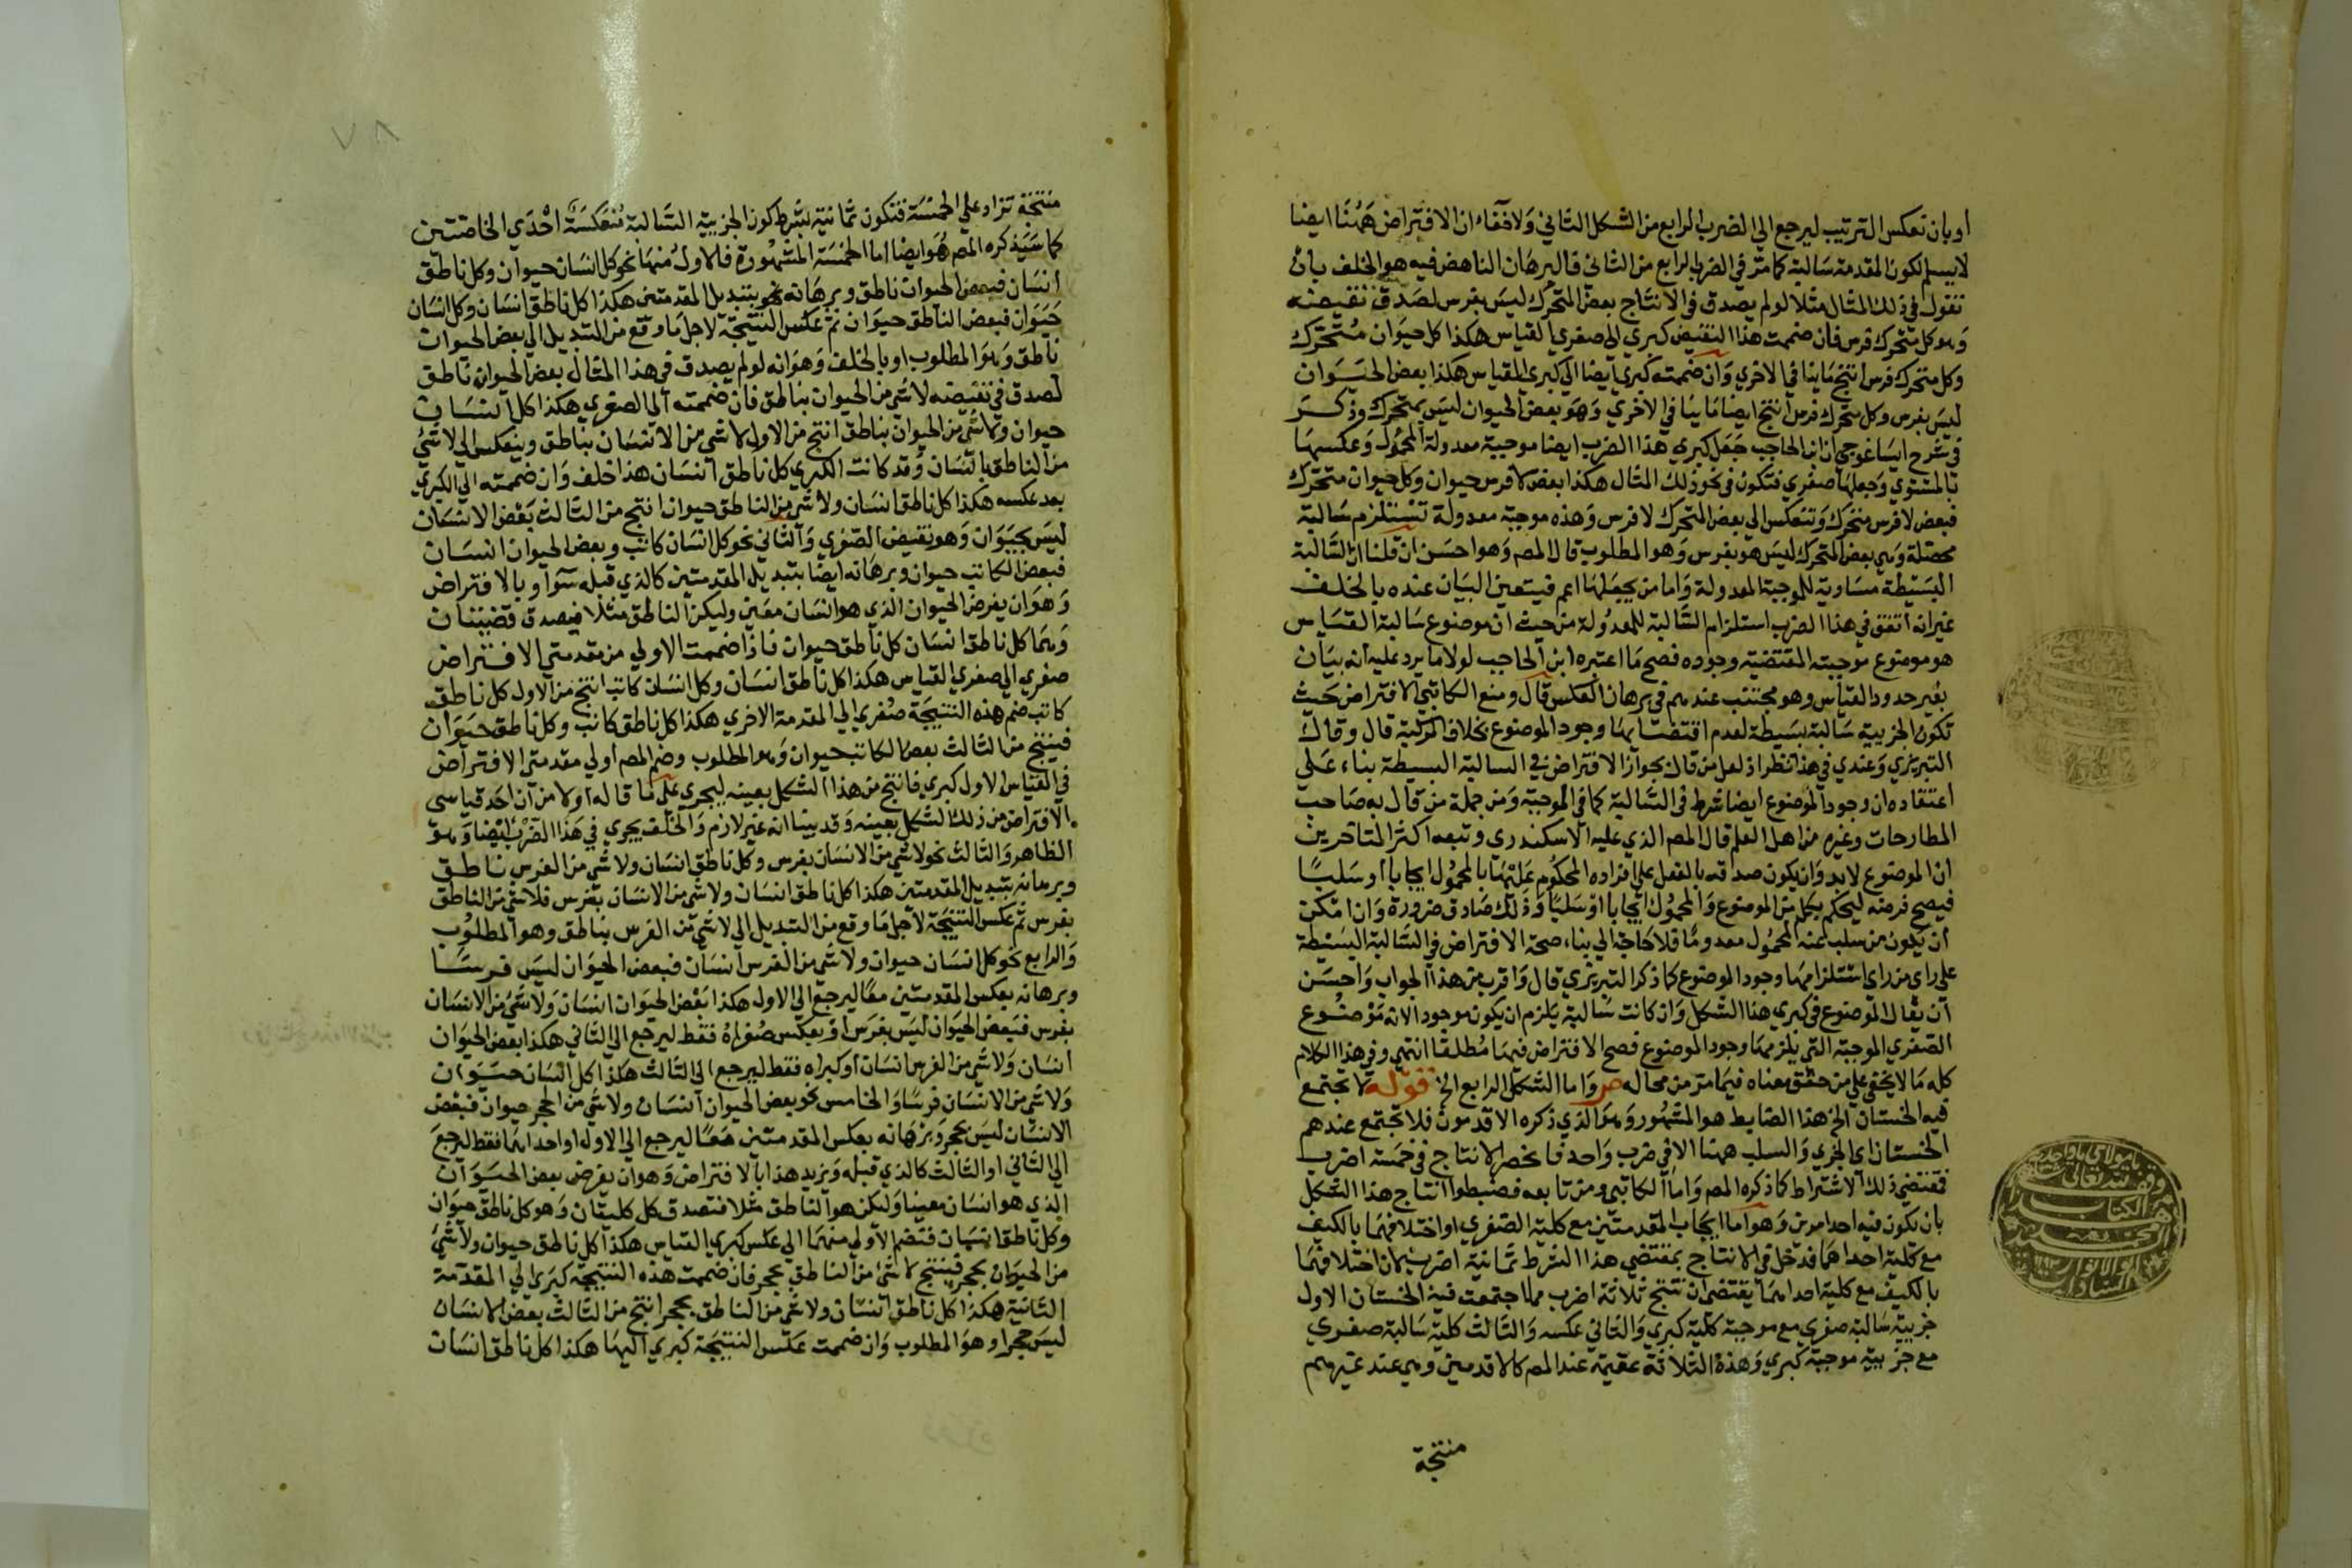 او بان تعكس الترتيب ليرجع الي الضرب الرابع من الشكل الثاني ولا خفاء ان الافتراض ههنا ايضا
لا يسلم لكون المقدمة سالبة كما مر في الضرب الرابع من الثاني فالبرهان الناهض فيه هو الخلف بان
تقول في ذلك المثال مثلا لو لم يصدق في الانتاج بعض المتحرك ليس بفرس لصدق نقيضه
وهو كل متحرك فرس فان ضممت هذا النقيض كبري الي صغري القياس هكذا كل حيوان متحرك
وكل متحرك فرس انتج ما ينافي الاخري وان ضممته كبري ايضا الي كبري القياس هكذا بعض الحيوان
ليس بفرس وكل متحرك فرس انتج ايضا ما ينافي الاخري وهو بعض الحيوان ليس بمتحرك وذكر
في شرح ايساغوجي ان ابن الحاجب جعل كبري هذا الضرب ايضا موجبة معدولة المحمول وعكسها
بالمستوي وجعلها صغري فتكون في نحو ذلك المثال هكذا بعض لا فرس حيوان وكل حيوان متحرك
فبعض لا فرس متحرك وتنعكس الي بعض المتحرك لا فرس وهذه موجبة معدولة تستلزم سالبة
محصلة وهي بعض المتحرك ليس هو بفرس وهو المطلوب قال المص وهو احسن ان قلنا ان السالبة
البسيطة مساوية للموجبة المعدولة واما من يجعلها اعم فيتعين البيان عنده بالخلف
غير انه اتفق في هذا الضرب استلزام السالبة للمعدولة من حيث ان موضوع سالبة القياس
هو موضوع موجبته المقتضية وجوده فصح ما اعتبره ابن الحاجب لولا ما يرد عليه انه بيان
بغير حدود القياس وهو مجتنب عندهم في برهان العكس قال ومنع الكاتبي الافتراض حيث
تكون الجزيية سالبة بسيطة لعدم اقتضائها وجود الموضوع بخلاف المركبة قال وقال
التبريزي وعندي في هذا نظر اذ لعل من قال بجواز الافتراض في السالبة البسيطة بناء على
اعتقاده ان وجود الموضوع ايضا شرط في السالبة كما في الموجبة ومن جملة من قال به صاحب
المطارحات وغيره من اهل العلم قال المص الذي عليه الاسكندري وتبعه اكثر المتاخرين
ان الموضوع لا بد وان يكون صدقه بالفعل على افراده المحكوم عليها بالمحمول ايجابا او سلبا
فيصح فرضه ليحكم بكل من الموضوع والمحمول ايجابا او سلبا وذلك صادق ضرورة وان امكن
ان يكون من سلب عنه المحمول معدوما فلا حاجة الي بناء صحة الافتراض في السالبة البسيطة
على راي من راي استلزامها وجود الموضوع كما ذكر التبريزي قال واقرب من هذا الجواب واحسن
ان يقال الموضوع في كبري هذا الشكل وان كانت سالبة يلزم ان يكون موجودا لانه موضوع
الصغري الموجبة التي يلزمها وجود الموضوع فصح الافتراض فيها مطلقا انتهي وفي هذا الكلام
كله ما لا يخفي علي من حقق معناه فيما مر من محاله ص واما الشكل الرابع الخ قوله لا يجتمع
فيه الخستان الخ هذا الضابط هو المشهور وهو الذي ذكره الاقدمون فلا تجتمع عندهم
الخستان اي الجزي والسلب ههنا الا في ضرب واحد فانحصر الانتاج في خمسة اضرب
فقتضي ذلك الاشتراط كما ذكره المص واما الكاتبي ومن تابعه فضبطوا انتاج هذا الشكل
بان يكون فيه احد امرين وهو اما ايجاب المقدمتين مع كلية الصغري او اختلافهما بالكيف
مع كلية احداهما فدخل في الانتاج بمقتضي هذا الشرط ثمانية اضرب لان اختلافهما
بالكيف مع كلية احداهما يقتضي ان تنتج ثلاثة اضرب مما اجتمعت فيه الخستان الاول
جزيية سالبة صغري مع موجبة كلية كبري والثاني عكسه والثالث كلية سالبة صغري
مع جزيية موجبة كبري وهذه الثلاثة عقيمة عند المص كالاقدمين وهي عند غيرهم
منتجة
٧٨
منتجة تزاد علي الخمسة فتكون ثمانية بشرط كون الجزيية السالبة منعكسة احدي الخاصتين
كما سيذكره المص هو ايضا اما الخمسة المشهورة فالاول منها نحو كل انسان حيوان وكل ناطق
انسان فبعض الحيوان ناطق وبرهانه نحو بتبديل المقدمتين هكذا كل ناطق انسان وكل انسان
حيوان فبعض الناطق حيوان ثم عكس النتيجة لاجل ما وقع من التبديل الي بعض الحيوان
ناطق وهو المطلوب او بالخلف وهو انه لو لم يصدق في هذا المثال بعض الحيوان ناطق
لصدق في نقيضه لا شي من الحيوان بناطق فان ضممته الي الصغري هكذا كل انسان
حيوان ولا شي من الحيوان بناطق انتج من الاول لا شي من الانسان بناطق وينعكس الي لا شي
من الناطق بانسان وقد كانت الكبري كل ناطق انسان هذا خلف وان ضممته الي الكبري
بعد عكسه هكذا كل ناطق انسان ولا شي من الناطق حيوان انتج من الثالث بعض الانسان
ليس بحيوان وهو نقيض الصغري والثاني نحو كل انسان كاتب وبعض الحيوان انسان
فبعض الكاتب حيوان وبرهانه ايضا بتبديل المقدمتين كالذي قبله سوا وبالافتراض
وهو ان يفرض الحيوان الذي هو انسان معين وليكن الناطق مثلا فيصدق قضيتان
وهما كل ناطق انسان كل ناطق حيوان فاذا ضممت الاولي من مقدمتي الافتراض
صغري الي صغري القياس هكذا كل ناطق انسان وكل انسان كاتب انتج من الاول كل ناطق
كاتب ضم هذه النتيجة صغري الي المقدمة الاخري هكذا كل ناطق كاتب وكل ناطق حيوان
فينتج من الثالث بعض الكاتب حيوان وهو المطلوب وضم المص اولي مقدمتي الافتراض
في القياس الاول كبري فانتج من هذا الشكل بعينه ليجري علي ما قاله اولا من ان احد قياسي
الافتراض من ذلك الشكل بعينه وقد بينا انه غير لازم والخلف يجري في هذا الضرب ايضا وهو
الظاهر والثالث نحو لا شي من الانسان بفرس وكل ناطق انسان ولا شي من الفرس ناطق
وبرهانه بتبديل المقدمتين هكذا كل ناطق انسان ولا شي من الانسان بفرس فلا شي من الناطق
بفرس ثم عكس النتيجة لاجل ما وقع من التبديل الي لا شي من الفرس بناطق وهو المطلوب
والرابع نحو كل انسان حيوان ولا شي من الفرس انسان فبعض الحيوان ليس فرسا
وبرهانه بعكس المقدمتين معا ليرجع الي الاول هكذا بعض الحيوان انسان ولا شي من الانسان
بفرس فبعض الحيوان ليس بفرس او بعكس صغراه فقط ليرجع الي الثاني هكذا بعض الحيوان
انسان ولا شي من الفرس انسان او كبراه فقط ليرجع الي الثالث هكذا كل انسان حيوان
ولا شي من الانسان فرسا والخامس نحو بعض الحيوان انسان ولا شي من الحجر حيوان فبعض
الانسان ليس بحجر وبرهانه بعكس المقدمتين معا ليرجع الي الاول او احداهما فقط ليرجع
الي الثاني او الثالث كالذي قبله ويزيد هذا بالافتراض وهو ان يفرض بعض الحيوان
الذي هو انسان معينا وليكن هو الناطق مثلا فتصدق كل كليتان وهو كل ناطق حيوان
وكل ناطق انسان فتضم الاولي منهما الي عكس كبري القياس هكذا كل ناطق حيوان ولا شي
من الحيوان بحجر فينتج لا شي من الناطق بحجر فان ضممت هذه النتيجة كبري الي المقدمة
الثانية هكذا كل ناطق انسان ولا شي من الناطق بحجر انتج من الثالث بعض الانسان
ليس حجرا وهو المطلوب وان ضممت عكس النتيجة كبري اليها هكذا كل ناطق انسان